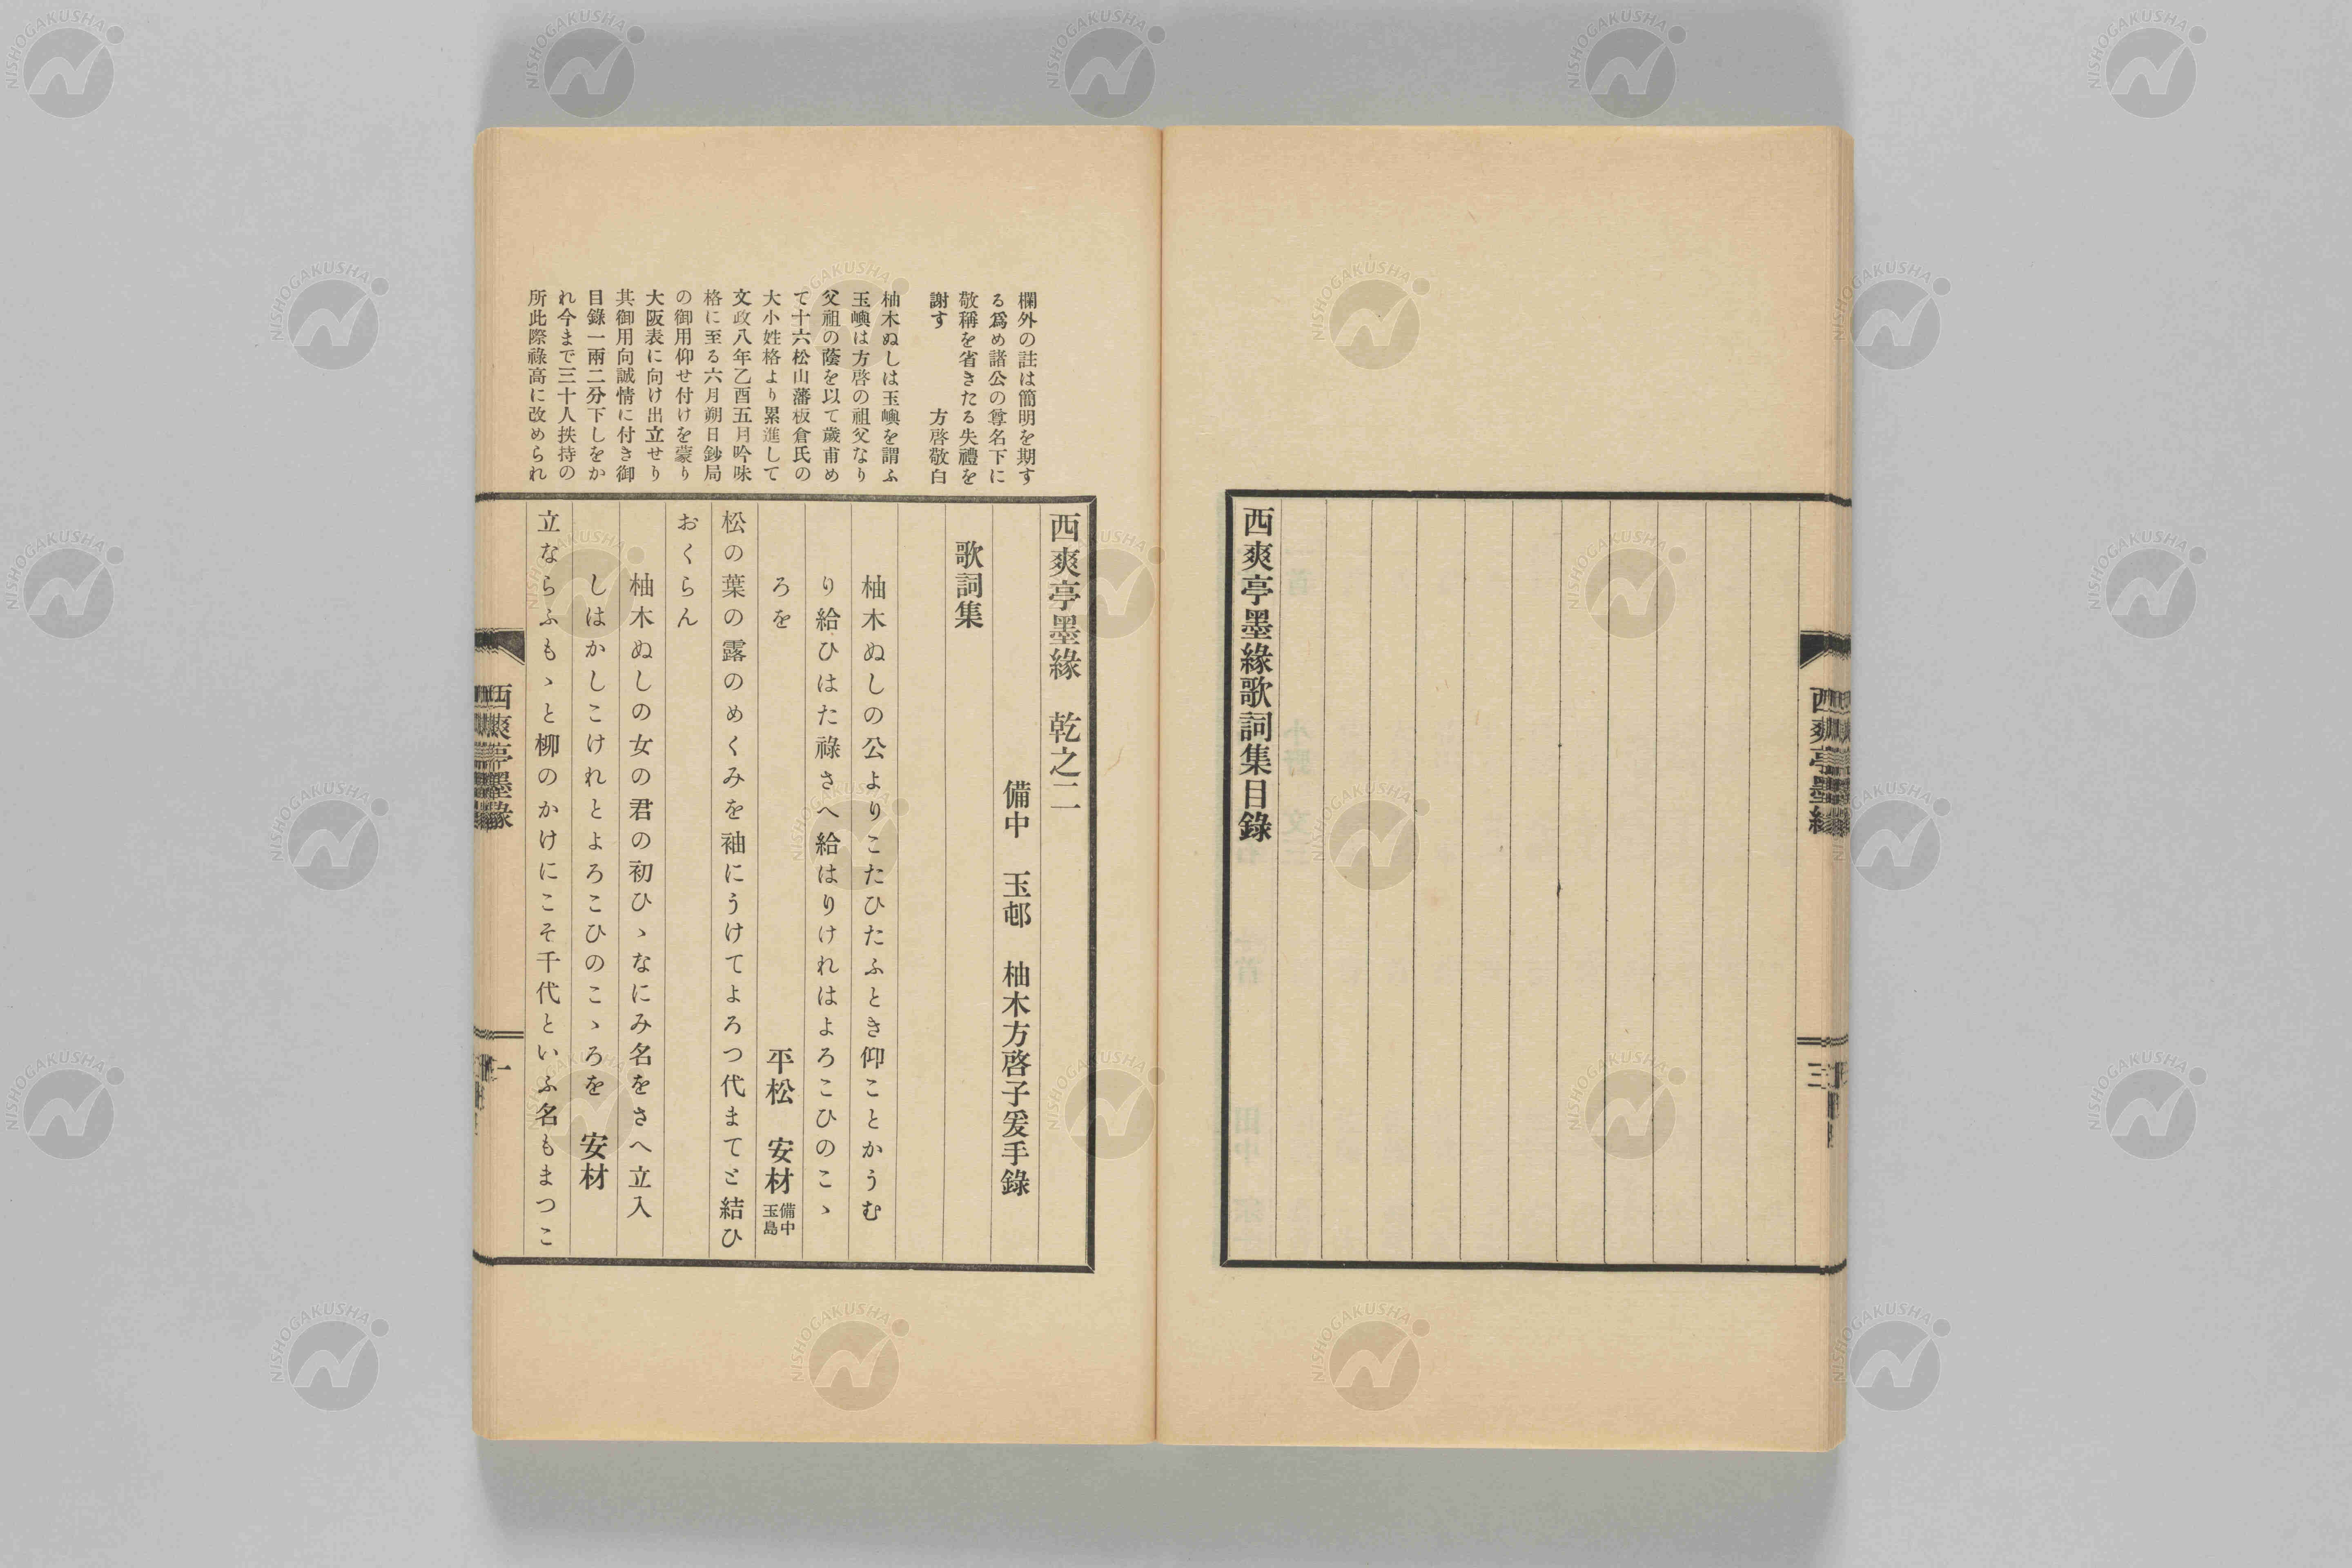 西爽亭墨緣歌詞集目錄
西爽亭墨緣　乾之二
備中　玉邨　柚木方啓子爰手錄
歌詞集
柚木ぬしの公よりこたひたふとき仰ことかうむ
り給ひはた祿さへ給はりけれはよろこひのこゝ
ろを
平松　安材 備中玉島
松の葉の露のめくみを袖にうけてよろつ代まてと結ひ
おくらん
柚木ぬしの女の君の初ひゝなにみ名をさへ立入
しはかしこけれとよろこひのこゝろを　安材
立ならふもゝと柳のかけにこそ千代といふ名もまつこ
欄外の註は簡明を期す
る爲め諸公の尊名下に
敬稱を省きたる失禮を
謝す　方啓敬白
柚木ぬしは玉嶼を謂ふ
玉嶼は方啓の祖父なり
父祖の蔭を以て歲甫め
て十六松山藩板倉氏の
大小姓格より累進して
文政八年乙酉五月吟味
格に至る六月朔日鈔局
の御用仰せ付けを蒙り
大阪表に向け出立せり
其御用向誠情に付き御
目錄一兩二分下しをか
れ今まで三十人扶持の
所此際祿高に改められ
西爽亭墨緣
一
西爽亭墨緣
三
NISHOGAKUSHA